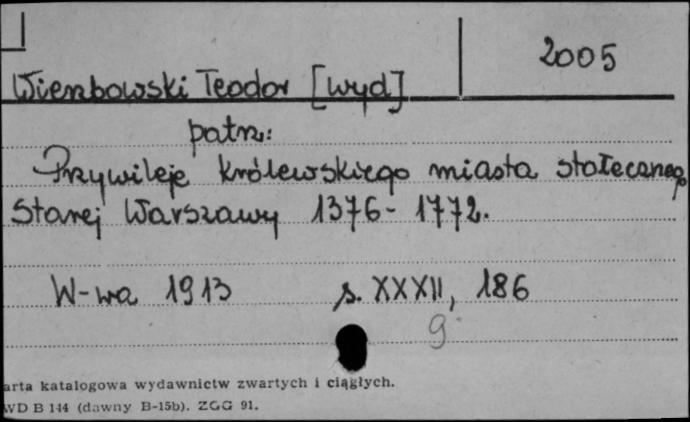 2005
Wierzbowski Teodor [wyd]
patrz:
Przywileje królewskiego miasta stołecznego
Starej Warszawy 1376-1772.
W-wa 1913 s. XXXII, 186
9
arta katalogowa wydawnictw zwartych i ciągłych.
WD B 144 (dawny B-15b). ZGG 91.